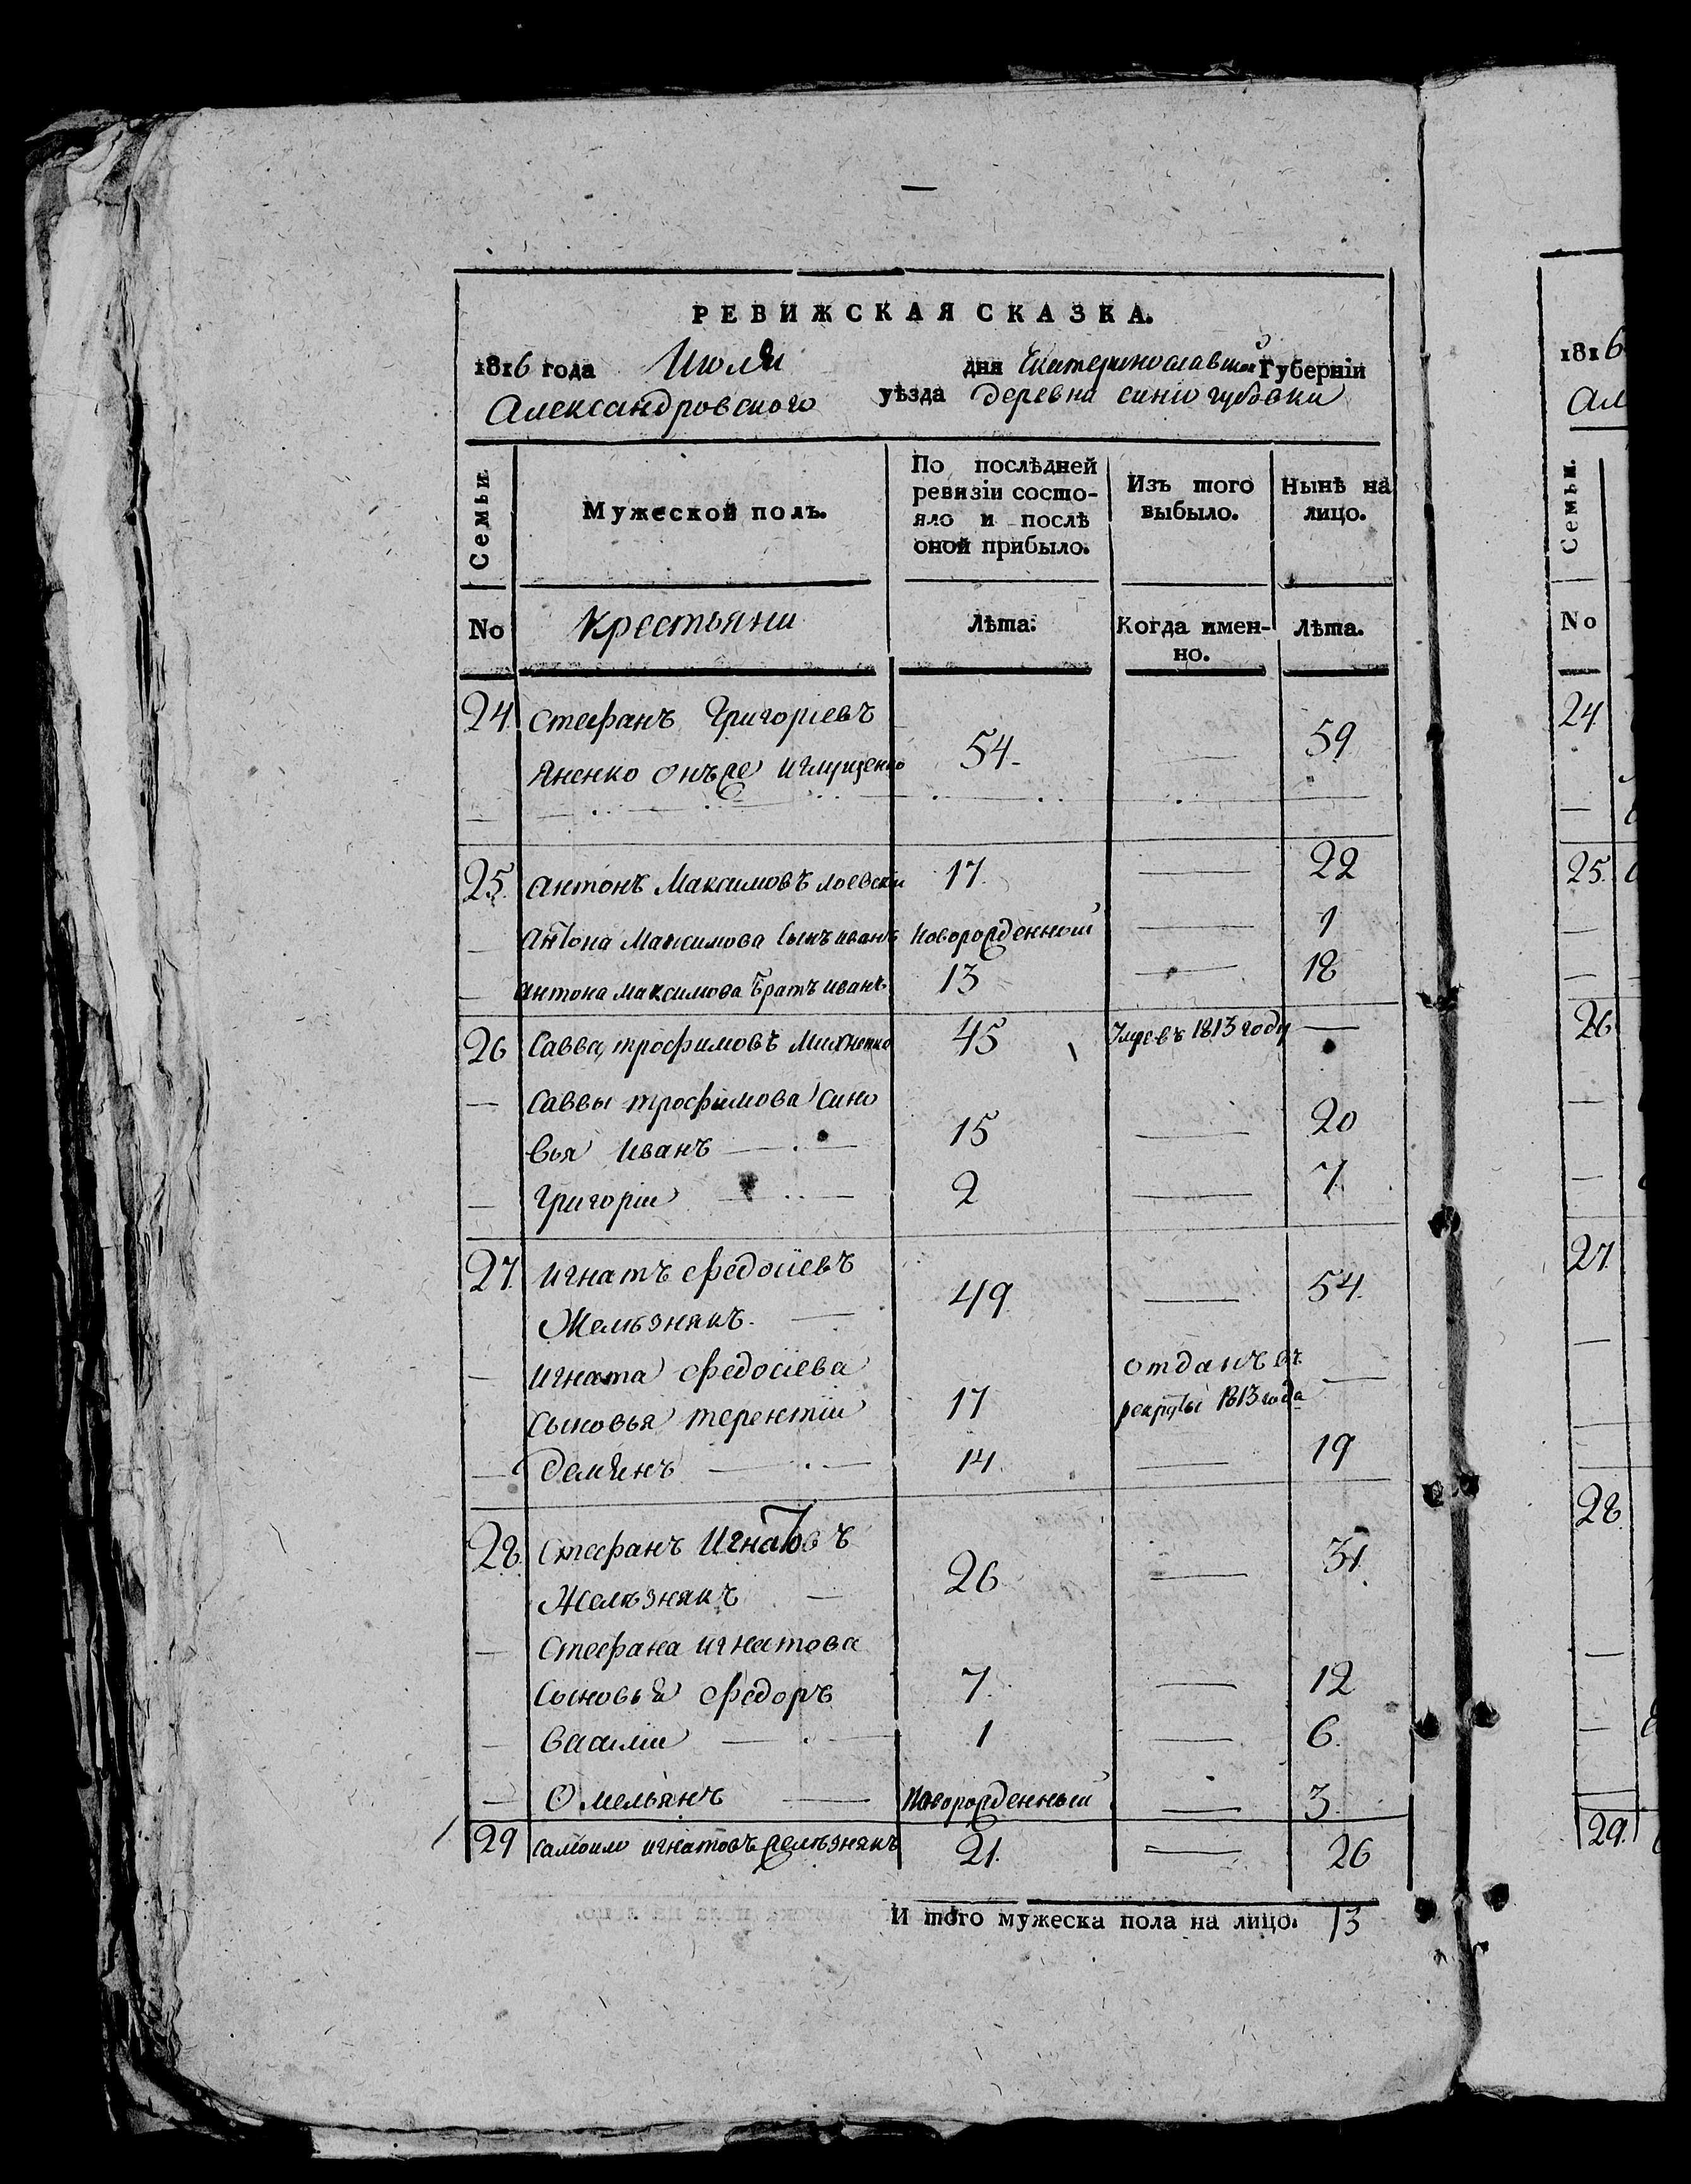 РЕВИЖСКАЯ СКАЗКА.
1816 года Июля дня Екатеринославской Губерніи
Александровского уѣзда деревна синогубовки
Семьи. Мужеской полъ. По послѣдней ревизіи состояло и послѣ оной прибыло. Изъ того выбыло. Нынѣ на лицо.
No Крестьяни Лѣта. Когда именно. Лѣта.
24. Стефанъ Григоріевъ
Яненко онъже иглущенко 54. — 59
25. Антонъ Максимовъ лоевски 17. — 22
— Антона Максимова Сынъ иванъ новорожденной — 1
— Антона максимова братъ иванъ 13 — 18
26 Савва трофимовъ Михненко 45 Умре въ 1813 году —
— Саввы трофимова Сино
вья Иванъ — 15 — 20
— Григоріи — 2 — 7.
27. Игнатъ Федосіевъ
Желѣзнякъ. — 49. — 54.
— Игната Федосіева отданъ въ
Сыновья терентіи 17 рекруты 1813 года —
— Демянъ — 14. — 19
28. Стефанъ Игнатовъ
Желѣзнякъ — 26 — 31.
— Стефана игнатова
Сыновья Федоръ 7. — 12
— Василіи — 1 — 6.
— Омельянъ — новорожденныи — 3.
29 Самоило игнатовъ желѣзнякъ 21. — 26
И того мужеска пола на лицо. 13
1816
Ал
Семьи.
No
24
25.
26
27.
28.
29.